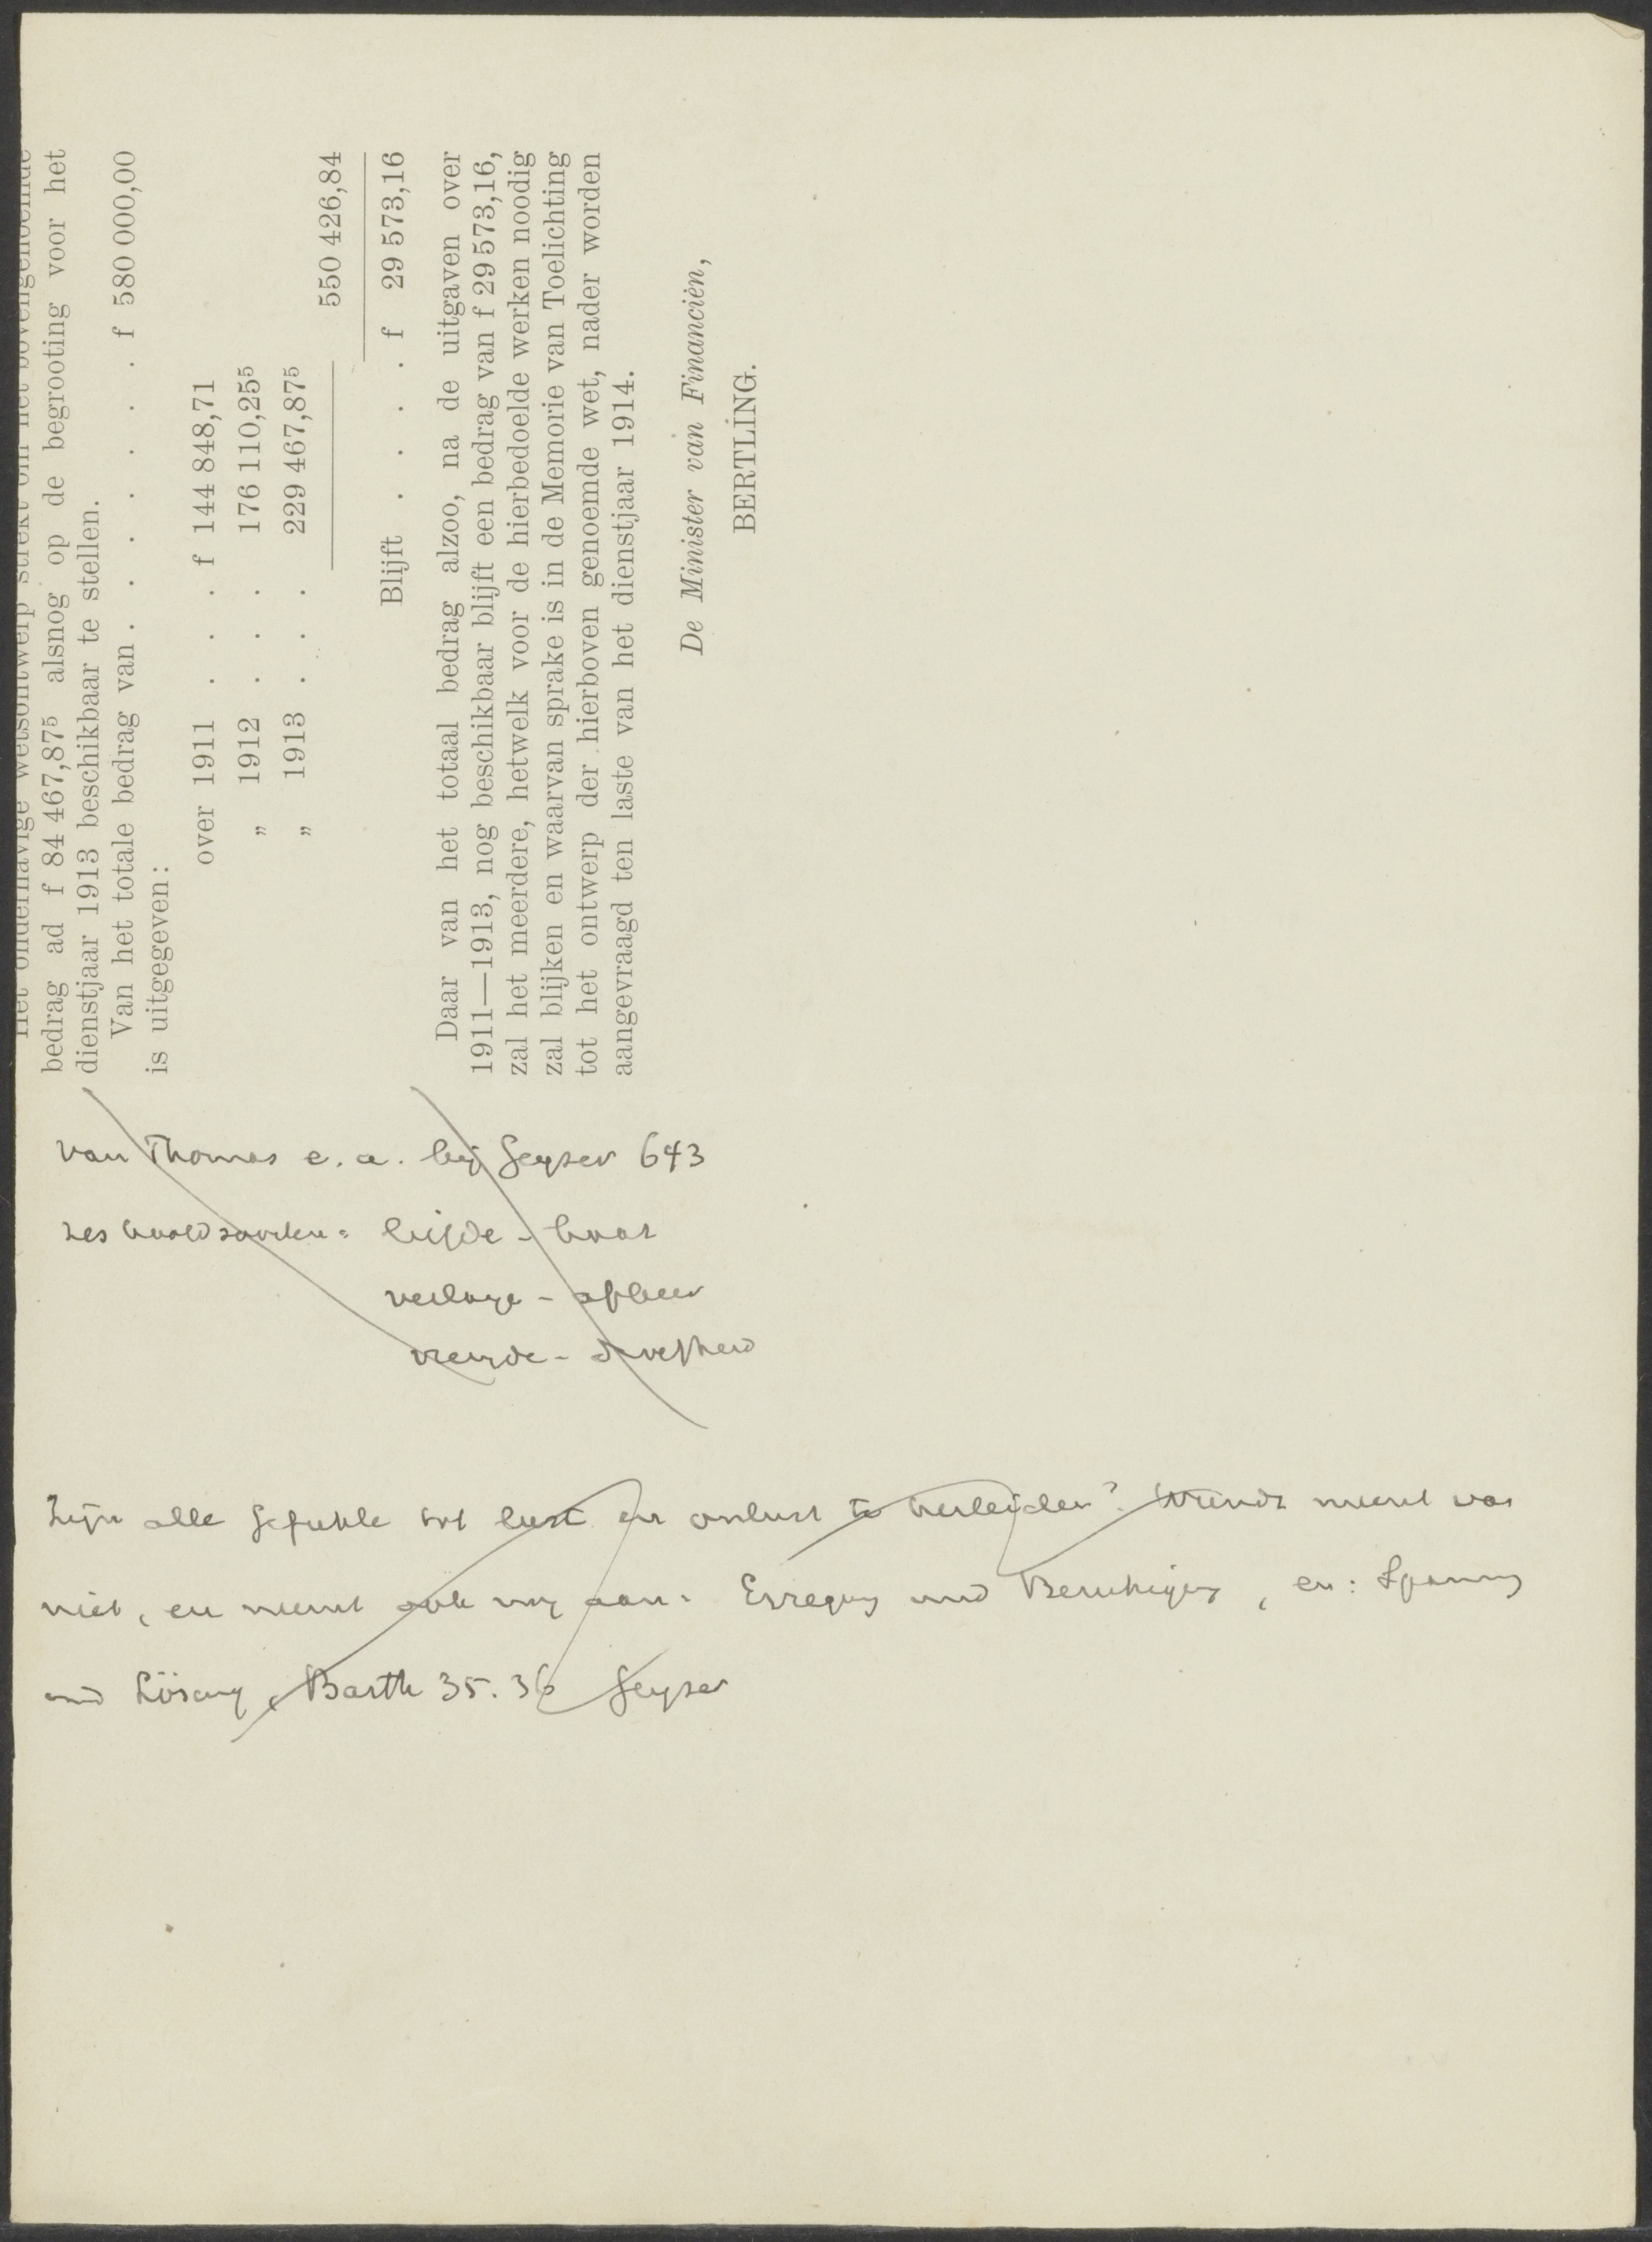 Het onderhavige wetsontwerp strekt om het bovengenoemde
bedrag ad f 84 467,87⁵ alsnog op de begrooting voor het
dienstjaar 1913 beschikbaar te stellen.
Van het totale bedrag van . . . . . . . f 580 000,00
is uitgegeven:
over 1911 . . . f 144 848,71
„ 1912 . . . 176 110,25⁵
„ 1913 . . . 229 467,87⁵
550 426,84
Blijft . . . . f 29 573,16
Daar van het totaal bedrag alzoo, na de uitgaven over
1911—1913, nog beschikbaar blijft een bedrag van f 29 573,16,
zal het meerdere, hetwelk voor de hierbedoelde werken noodig
zal blijken en waarvan sprake is in de Memorie van Toelichting
tot het ontwerp der hierboven genoemde wet, nader worden
aangevraagd ten laste van het dienstjaar 1914.
De Minister van Financiën,
BERTLING.
van Thomas e. a. bij Geyser 643
zes hoofdsoorten: liefde - haat
verlange - afkeer
vreugde - droefheid
Zijn alle Gefuhle tot lust en onlust te herleiden? Wundt meent van
niet, en neemt ook nog aan: Erregung und Beruhigung, en: Spannung
und Lösung, Barth 35. 36 Geyser